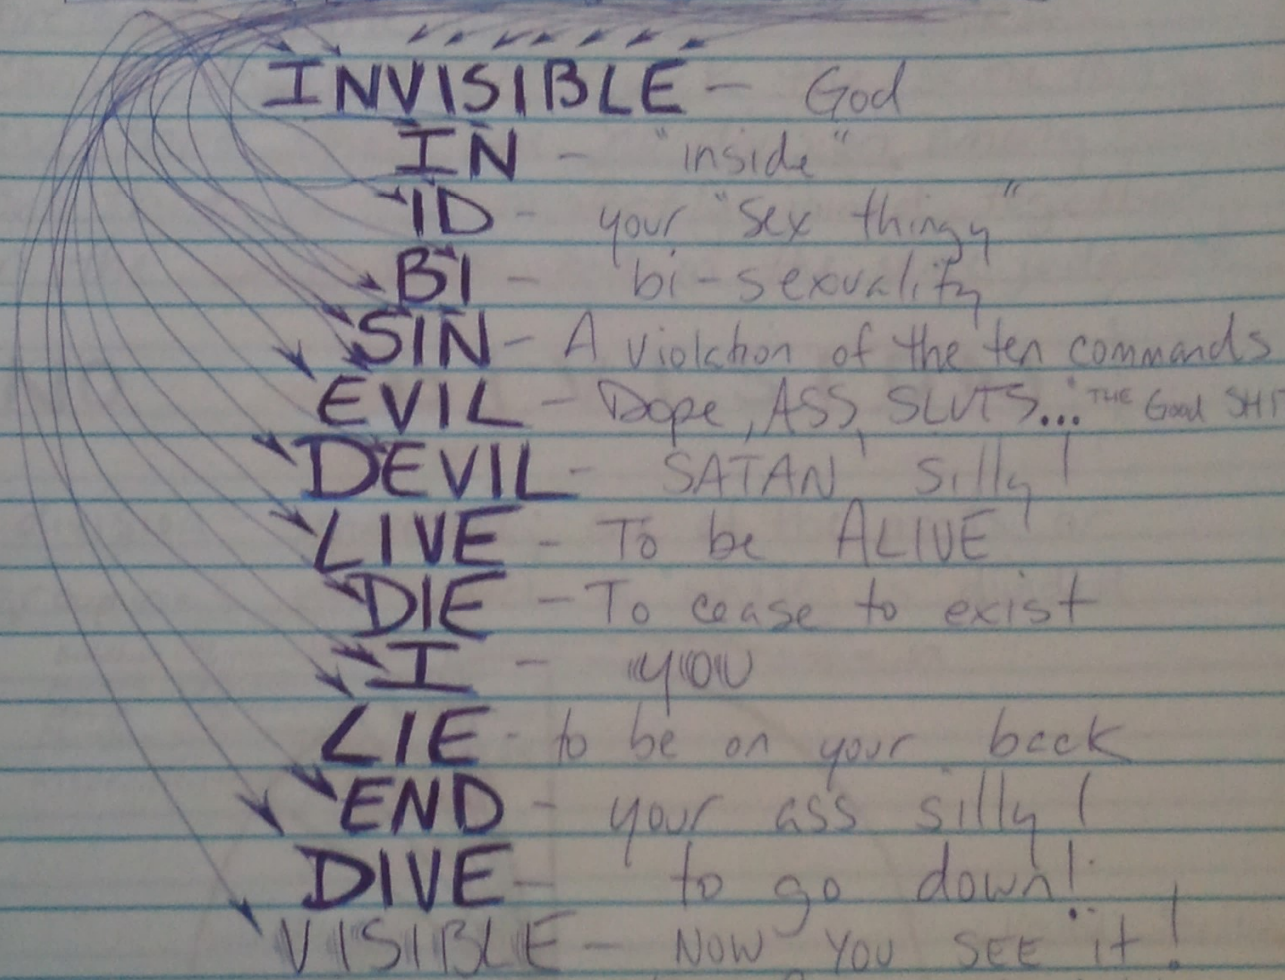 INVISIBLE - God
IN - "inside"
ID - your "sex thingy"
BI - bi-sexuality
SIN - A violation of the ten commands
EVIL - Dope, ASS, SLUTS... THE Good SHI
DEVIL - SATAN silly!
LIVE - To be ALIVE
DIE - To cease to exist
I - you
LIE - to be on your back
END - your ass silly!
DIVE - to go down!
VISIBLE - NOW YOU SEE it!